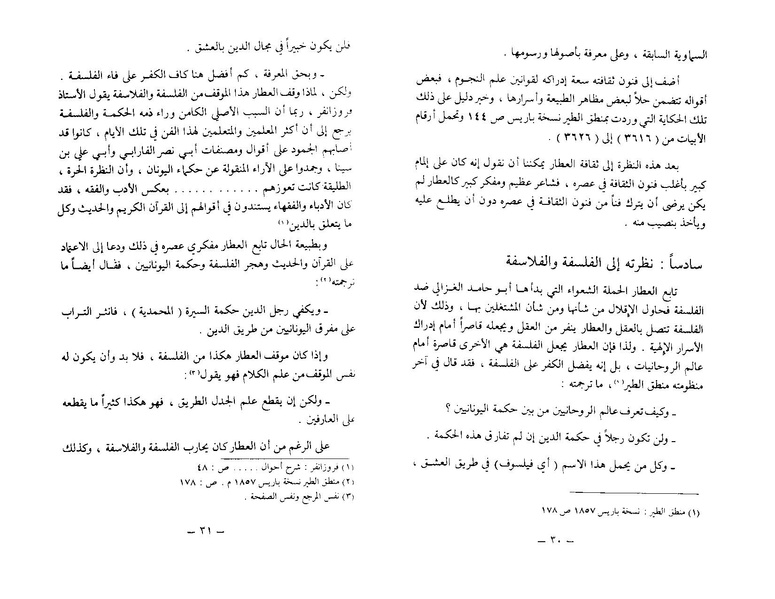 السماوية السابقة ، وعلى معرفة بأصولها ورسومها .
أضف إلى فنون ثقافته سعة إدراكه لقوانين علم النجوم ، فبعض
أقواله تتضمن حلاً لبعض مظاهر الطبيعة وأسرارها ، وخير دليل على ذلك
تلك الحكاية التي وردت بمنطق الطير نسخة باريس ص ١٤٤ وتحمل أرقام
الأبيات من ( ٣٦١٦ ) إلى ( ٣٦٢٦ ) .
بعد هذه النظرة إلى ثقافة العطار يمكننا أن نقول إنه كان على إلمام
كبير بأغلب فنون الثقافة في عصره ، فشاعر عظيم ومفكر كبير كالعطار لم
يكن يرضى أن يترك فناً من فنون الثقافة في عصره دون أن يطلع عليه
ويأخذ بنصيب منه .
سادساً : نظرته إلى الفلسفة والفلاسفة
تابع العطار الحملة الشعواء التي بدأها أبو حامد الغزالي ضد
الفلسفة فحاول الإقلال من شأنها ومن شأن المشتغلين بها ، وذلك لأن
الفلسفة تتصل بالعقل والعطار ينفر من العقل ويجعله قاصراً أمام إدراك
الأسرار الإلهية . ولذا فإن العطار يجعل الفلسفة هي الأخرى قاصرة أمام
عالم الروحانيات ، بل إنه يفضل الكفر على الفلسفة ، فقد قال في آخر
منظومته منطق الطير(١)، ما ترجمته :
ـ وكيف تعرف عالم الروحانيين من بين حكمة اليونانيين ؟
ـ ولن تكون رجلاً في حكمة الدين إن لم تفارق هذه الحكمة .
ـ وكل من يحمل هذا الاسم ( أي فيلسوف) في طريق العشق ،
(١) منطق الطير : نسخة باريس ١٨٥٧ ص ١٧٨
ـ ٣٠ ـ
فلن يكون خبيراً في مجال الدين بالعشق .
ـ وبحق المعرفة ، كم أفضل هنا كاف الكفر على فاء الفلسفة .
ولكن ، لماذا وقف العطار هذا الموقف من الفلسفة والفلاسفة يقول الأستاذ
فروزانفر ، ربما أن السبب الأصلي الكامن وراء ذمه الحكمة والفلسفة
يرجع إلى أن أكثر المعلمين والمتعلمين لهذا الفن في تلك الأيام ، كانوا قد
أصابهم الجمود على أقوال ومصنفات أبي نصر الفارابي وأبي علي بن
سينا ، وجمدوا على الآراء المنقولة عن حكماء اليونان ، وأن النظرة الحرة ،
الطليقة كانت تعوزهم . . . . . . . . . . . . بعكس الأدب والفقه ، فقد
كان الأدباء والفقهاء يستندون في أقوالهم إلى القرآن الكريم والحديث وكل
ما يتعلق بالدين(١)
وبطبيعة الحال تابع العطار مفكري عصره في ذلك ودعا إلى الاعتماد
على القرآن والحديث وهجر الفلسفة وحكمة اليونانيين ، فقال أيضاً ما
ترجمته(٢) :
ـ ويكفي رجل الدين حكمة السيرة ( المحمدية) ، فانثر التراب
على مفرق اليونانيين من طريق الدين .
وإذا كان موقف العطار هكذا من الفلسفة ، فلا بد وأن يكون له
نفس الموقف من علم الكلام فهو يقول(٣) :
ـ ولكن إن يقطع علم الجدل الطريق ، فهو هكذا كثيراً ما يقطعه
على العارفين .
على الرغم من أن العطار كان يحارب الفلسفة والفلاسفة ، وكذلك
(١) فروزانفر : شرح أحوال . . . . . ص : ٤٨
(٢) منطق الطير نسخة باريس ١٨٥٧ م . ص : ١٧٨
(٣) نفس المرجع ونفس الصفحة .
ـ ٣١ ـ